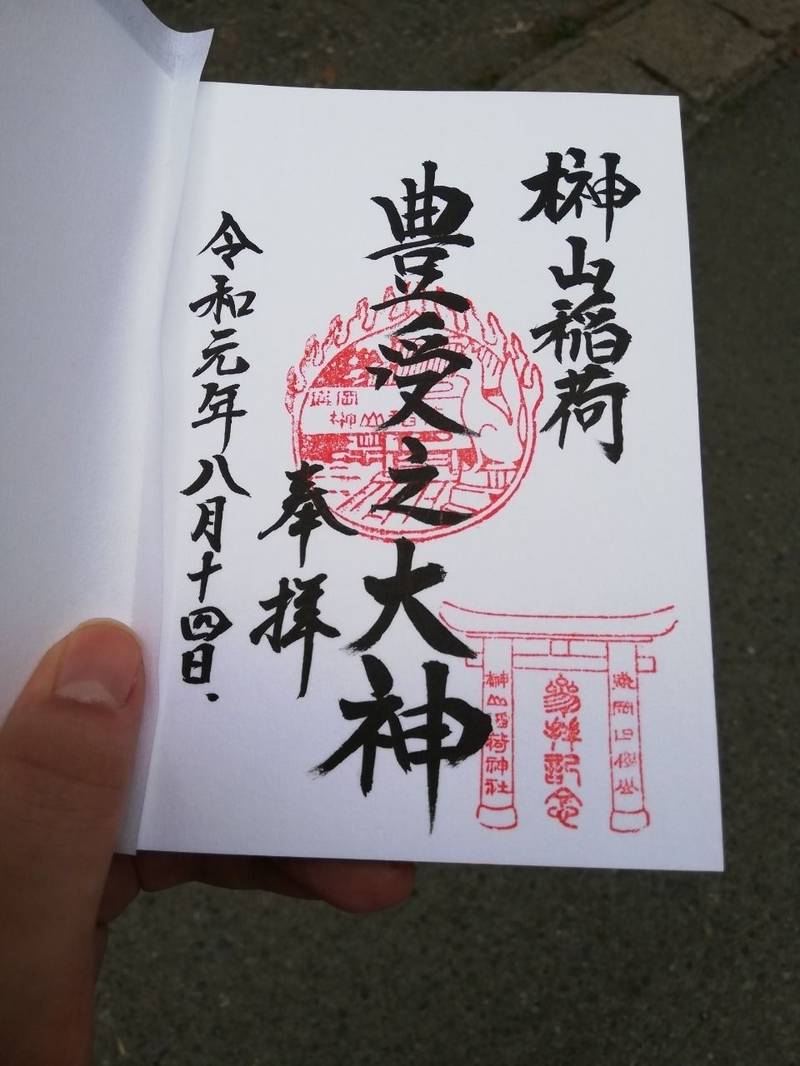 榊山稲荷
豊受之大神
奉拝
令和元年八月十四日.
盛岡
榊山稲荷
参拝記念
榊山稲荷神社